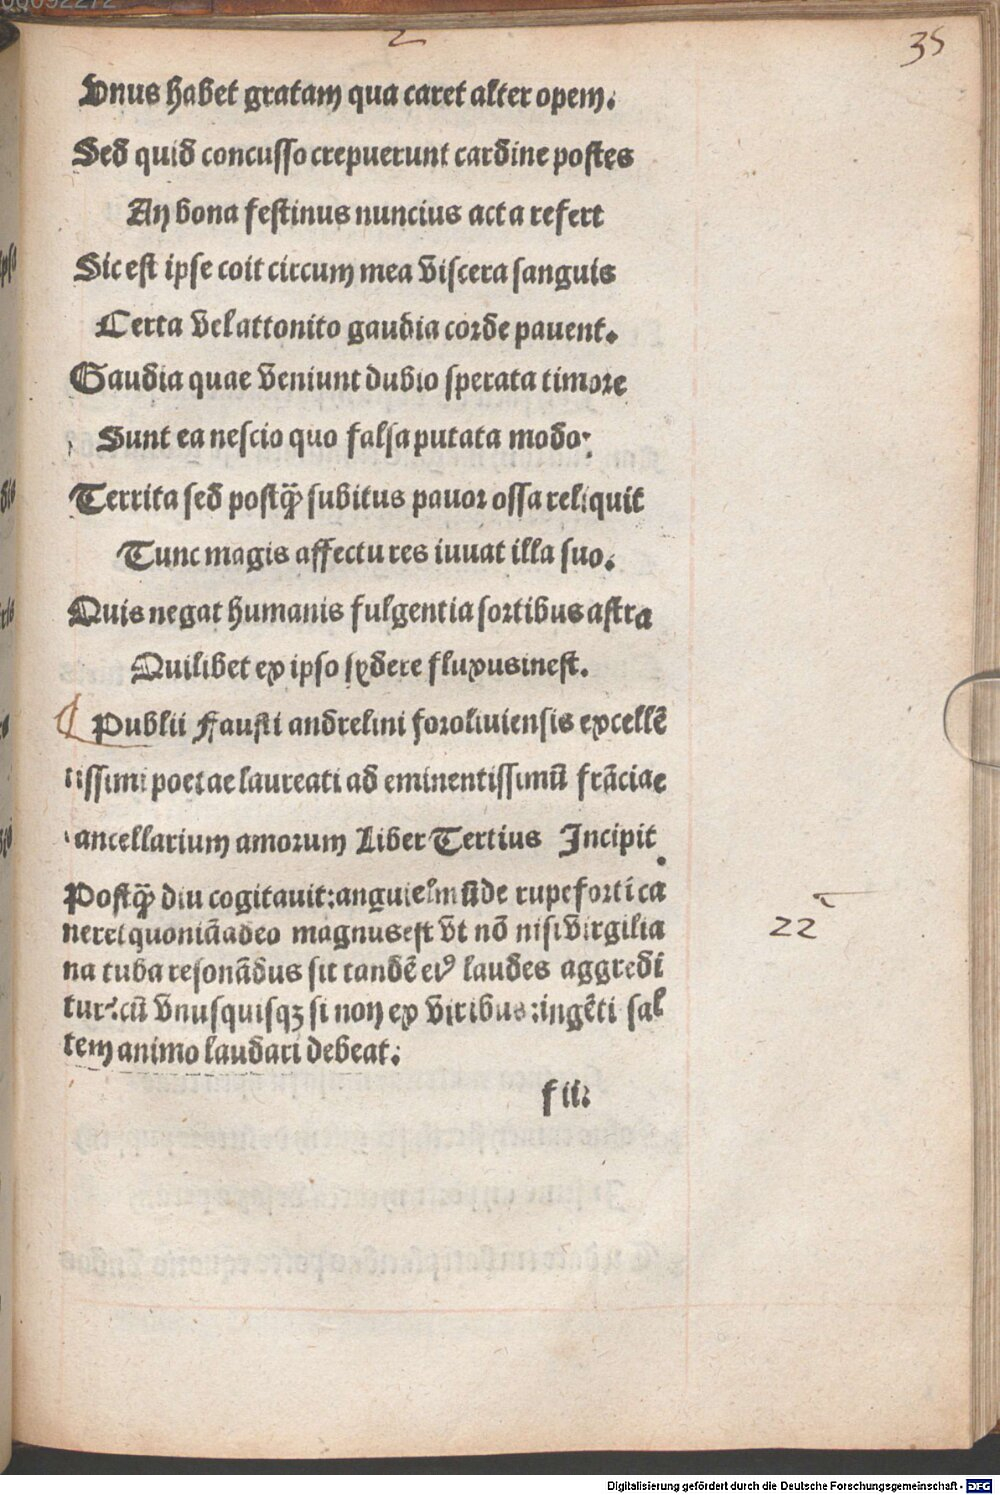 35
2
Vnus habet gratam qua caret alter opem.
Sed quid concusso crepuerunt cardine postes
An bona festinus nuncius acta refert
Sic est ipse coit circum mea viscera sanguis
Certa vel attonito gaudia corde pauent.
Gaudia quae veniunt dubio sperata timore
Sunt ea nescio quo falsa putata modo:
Territa sed postq̃ subitus pauor ossa reliquit
Tunc magis affectu res iuuat illa suo.
Quis negat humanis fulgentia sortibus astra
Quilibet ex ipso sydere fluxus inest.
Publii Fausti andrelini foroliuiensis excellē
tissimi poetae laureati ad eminentissimū frāciae
ancellarium amorum Liber Tertius Incipit.
Postq̃ diu cogitauit: anguielmūde rupeforti ca
neret quoniā adeo magnus est vt nō nisi virgilia
na tuba resonādus sit tandē eiꝰ laudes aggredi
tur: cū vnusquisqꝫ si non ex viribus: ingēti sal
tem animo laudari debeat.
f ii:
22
Digitalisierung gefördert durch die Deutsche Forschungsgemeinschaft - DFG